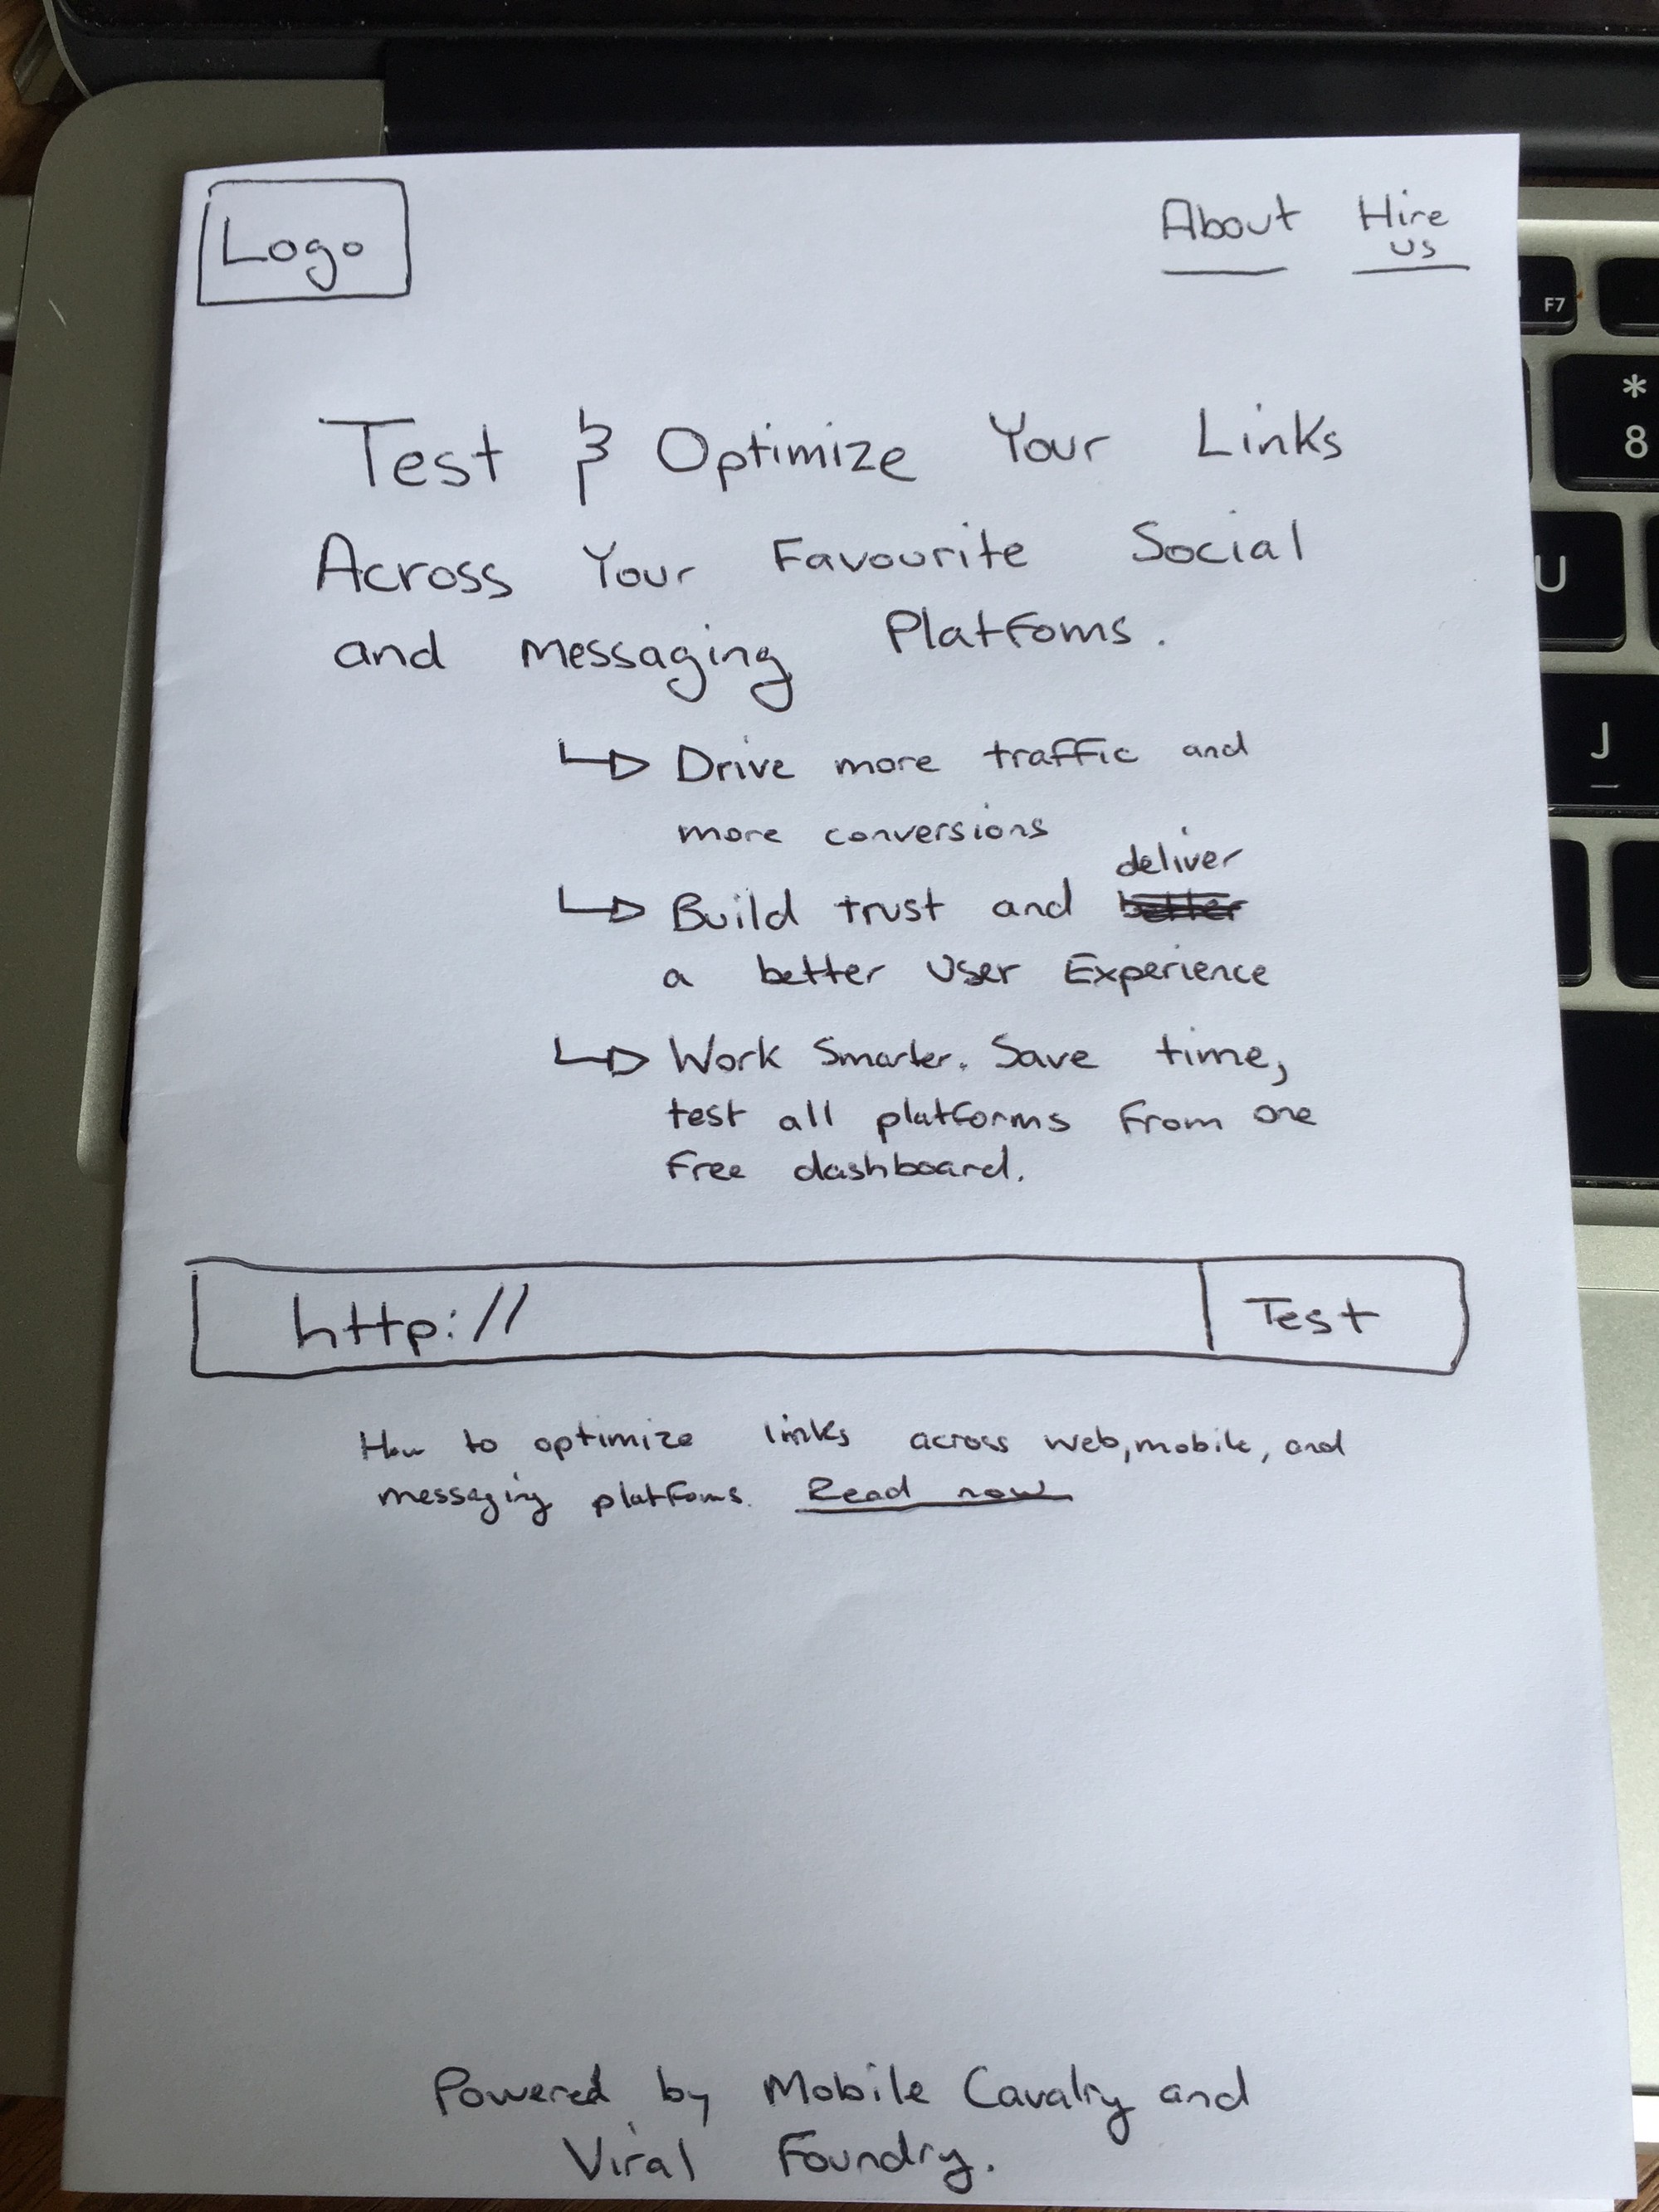 Logo
About Hire us
Test & Optimize Your Links
Across Your Favourite Social
and messaging Platfoms.
Drive more traffic and
more conversions
deliver
Build trust and better
a better User Experience
Work Smarter. Save time,
test all platforms from one
free dashboard.
http:// Test
How to optimize links across web, mobile, and
messaging platfoms. Read now
Powered by Mobile Cavalry and
Viral Foundry.
F7
*
8
U
J